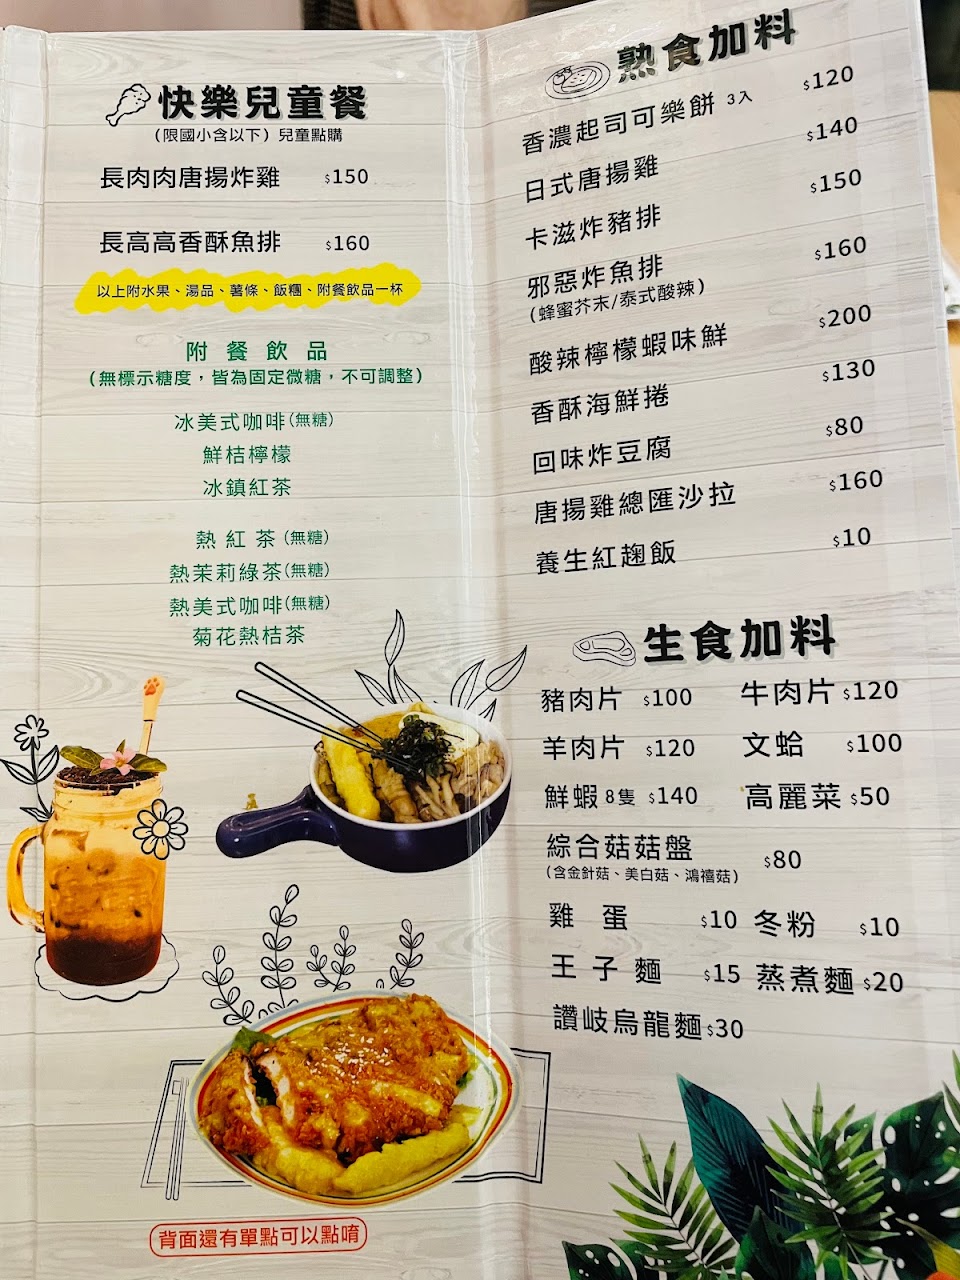 快樂兒童餐
(限國小含以下) 兒童點購
長肉肉唐揚炸雞 $150
長高高香酥魚排 $160
以上附水果、湯品、薯條、飯糰、附餐飲品一杯
附餐飲品
(無標示糖度，皆為固定微糖，不可調整)
冰美式咖啡(無糖)
鮮桔檸檬
冰鎮紅茶
熱紅茶(無糖)
熱茉莉綠茶(無糖)
熱美式咖啡(無糖)
菊花熱桔茶
背面還有單點可以點唷
熟食加料
香濃起司可樂餅 3入 $120
日式唐揚雞 $140
卡滋炸豬排 $150
邪惡炸魚排 $160
(蜂蜜芥末/泰式酸辣)
酸辣檸檬蝦味鮮 $200
香酥海鮮捲 $130
回味炸豆腐 $80
唐揚雞總匯沙拉 $160
養生紅麴飯 $10
生食加料
豬肉片 $100 牛肉片 $120
羊肉片 $120 文蛤 $100
鮮蝦 8隻 $140 高麗菜 $50
綜合菇菇盤 $80
(含金針菇、美白菇、鴻禧菇)
雞蛋 $10 冬粉 $10
王子麵 $15 蒸煮麵 $20
讚岐烏龍麵 $30